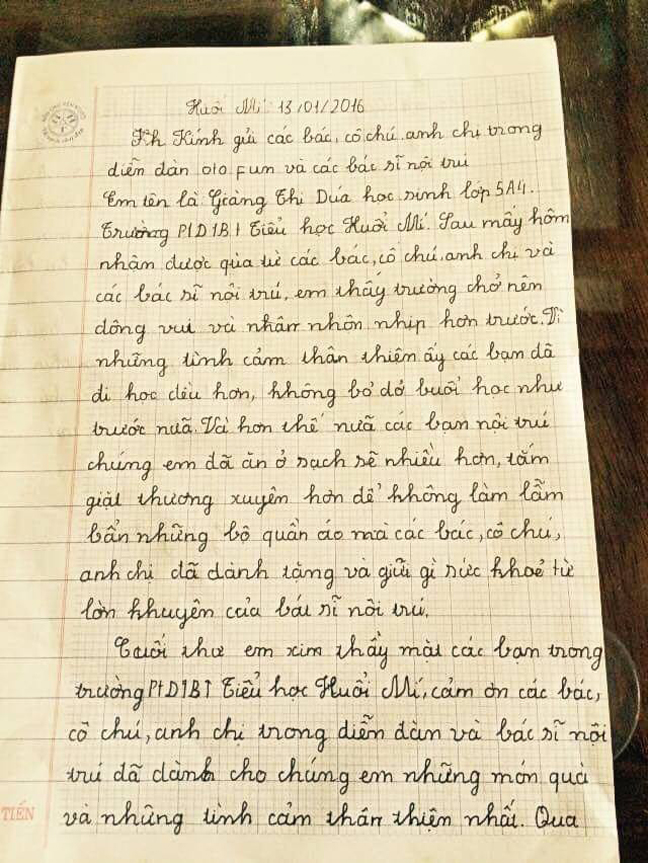 Huổi Mí 13/01/2016
Kh Kính gửi các bác, cô chú, anh chị trong
diễn dàn oto Fun và các bác sĩ nội trú
Em tên là Giàng Thị Dúa học sinh lớp 5A4.
Trường PTDTBT Tiểu học Huổi Mí. Sau mấy hôm
nhận được qùa từ các bác, cô chú, anh chị và
các bác sĩ nội trú, em thấy trường chở nên
đông vui và nhân nhôn nhịp hơn trước. Vì
những tình cảm thân thiện ấy các bạn đã
đi học đều hơn, không bỏ dở buổi học như
trước nưã. Và hơn thế nưã các bạn nội trú
chúng em đã ăn ở sạch sẽ nhiều hơn, tắm
giặt thương xuyên hơn để không làm lẫm
bẩn những bộ quần áo mà các bác, cô chú,
anh chị đã dành tặng và giữi gì sức khoẻ từ
lờn khuyên của bát sĩ nôi trú.
Cuối thư em xim thẩy mặt các bạn trong
trường PTDTBT Tiểu học Huổi Mí, cảm ơn các bác,
cô chú, anh chị trong diễn dàn và bác sĩ nội
trú đã dành cho chúng em những món quà
và những tình cảm thân thiện nhất. Qua
TIẾN